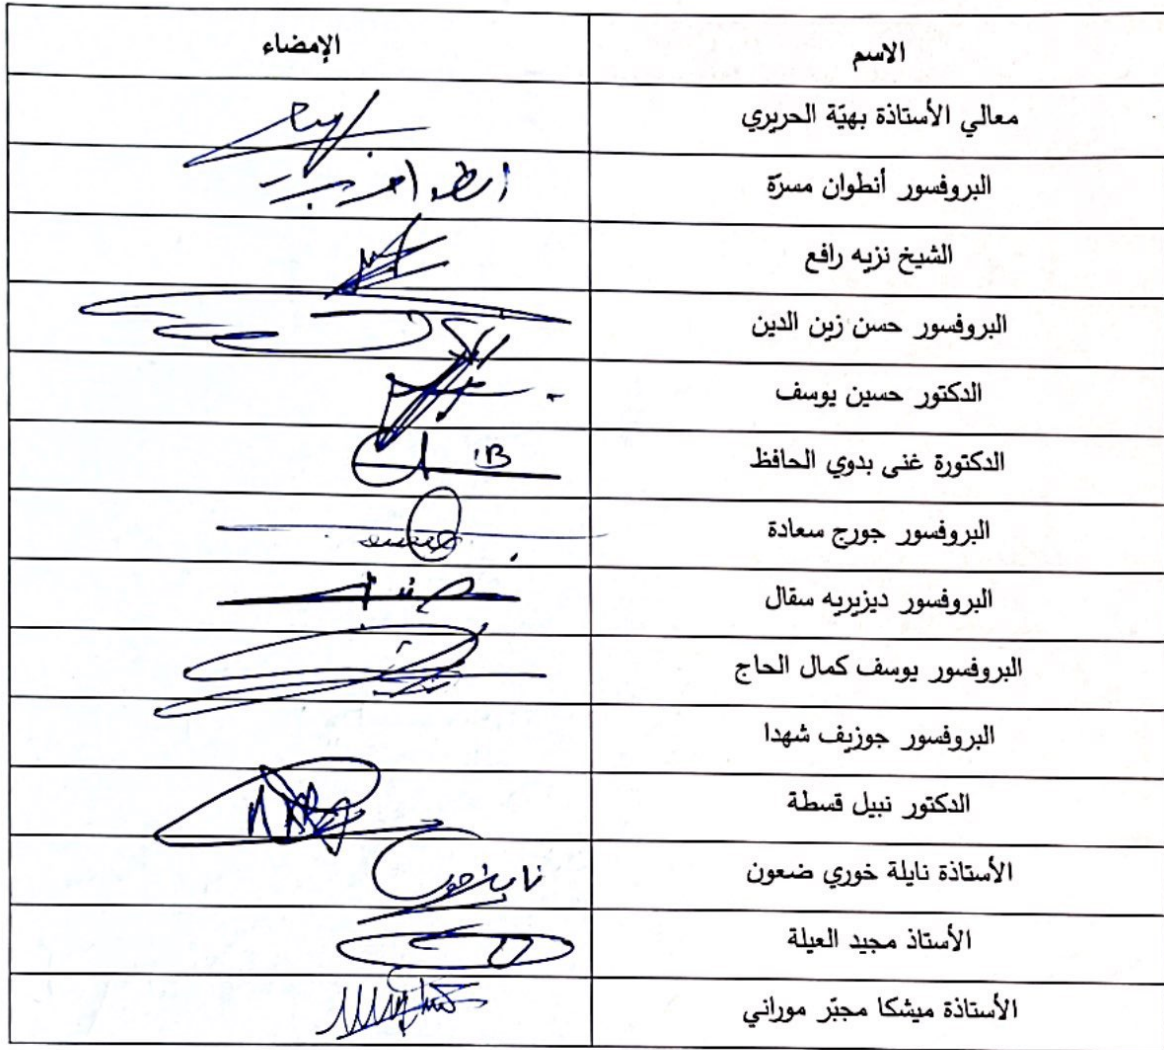 الاسم الإمضاء
معالي الأستاذة بهيّة الحريري
البروفسور أنطوان مسرّة
الشيخ نزيه رافع
البروفسور حسن زين الدين
الدكتور حسين يوسف
الدكتورة غنى بدوي الحافظ
البروفسور جورج سعادة
البروفسور ديزيريه سقال
البروفسور يوسف كمال الحاج
البروفسور جوزيف شهدا
الدكتور نبيل قسطة
الأستاذة نايلة خوري ضعون
الأستاذ مجيد العيلة
الأستاذة ميشكا مجبّر موراني